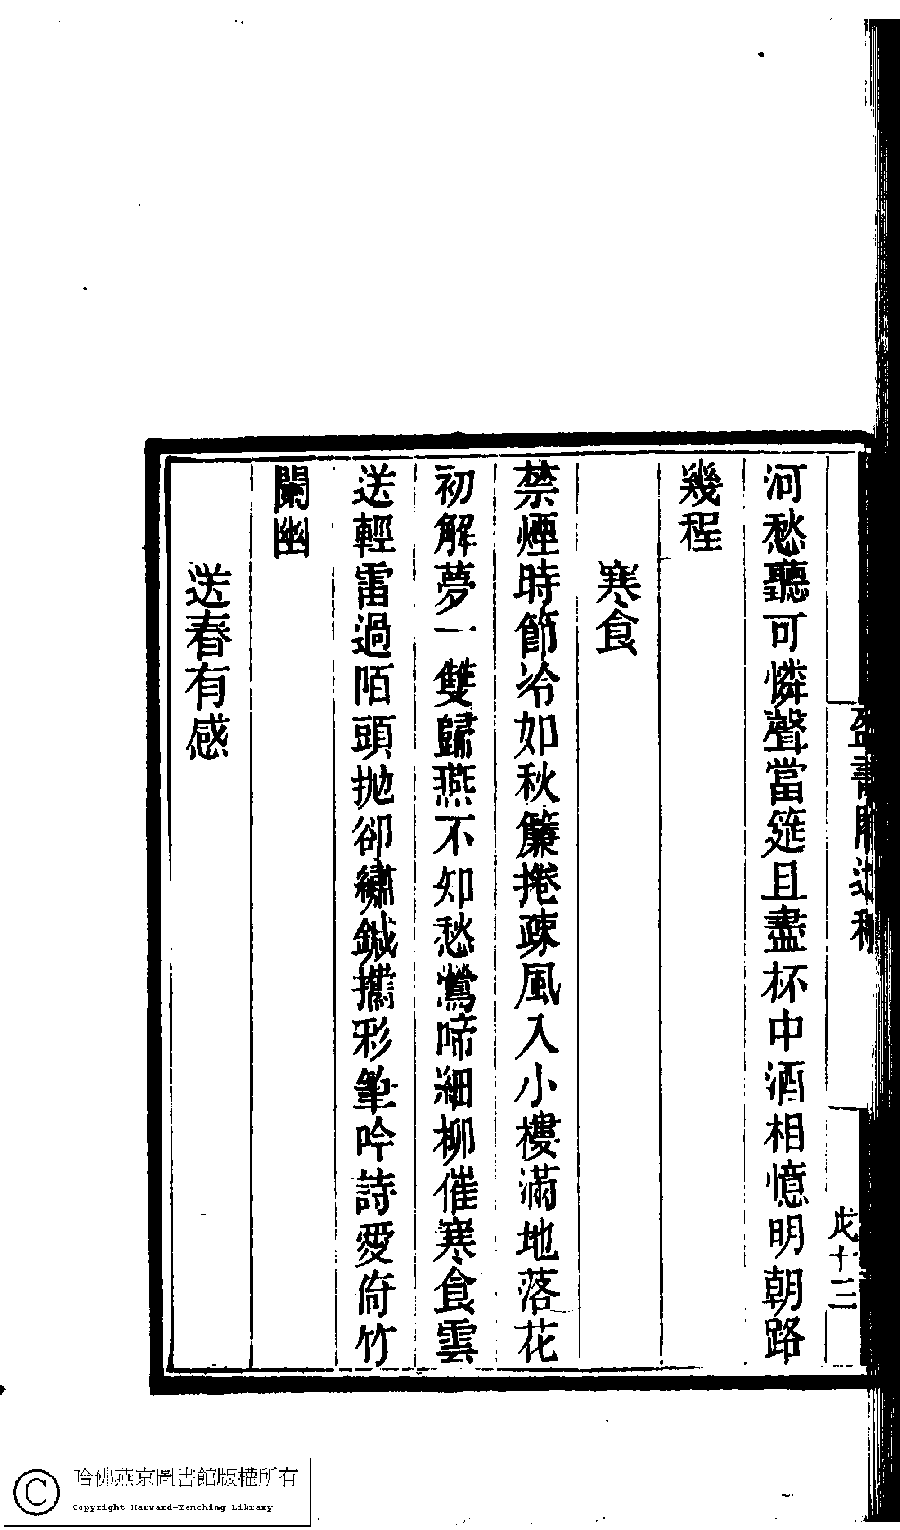 河愁聽可憐聲當筵且盡杯中酒相憶明朝路
幾程
寒食
禁煙時節冷如秋簾捲疎風入小樓滿地落花
初解夢一雙歸燕不知愁鶯啼細柳催寒食雲
送輕雷過陌頭拋卻繡鍼攜彩筆吟詩愛倚竹
闌幽
送春有感
十二
哈佛燕京圖書館版權所有
Copyright Harvard-Yenching Library